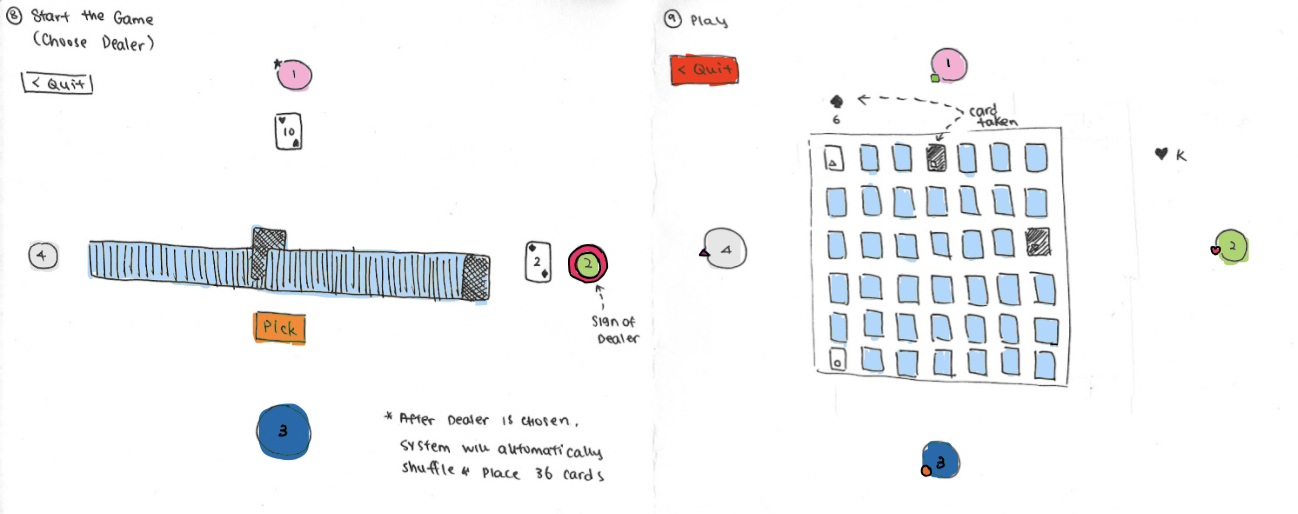 8 Start the Game
(Choose Dealer)
< Quit
1
10
4
2
2
Sign of
Dealer
Pick
3
* After Dealer is chosen,
system will automatically
shuffle & Place 36 cards
9 Play
< Quit
1
6
card
taken
K
4
2
3